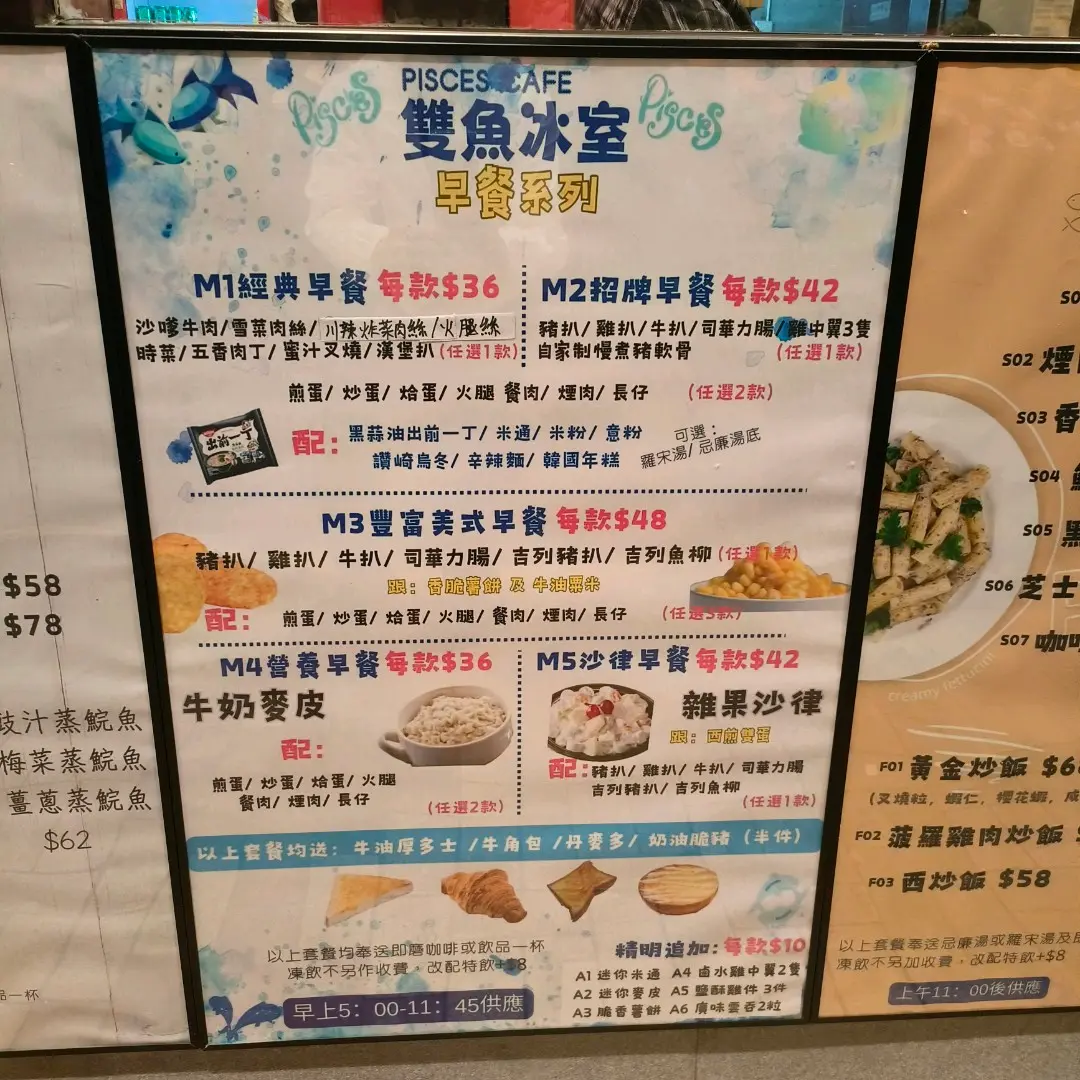 PISCES CAFE
Pisces
Pisces
雙魚冰室
早餐系列
M1經典早餐 每款$36
沙嗲牛肉/雪菜肉絲/川辣炸菜肉絲/火腿絲
時菜/五香肉丁/蜜汁叉燒/漢堡扒(任選1款)
M2招牌早餐 每款$42
豬扒/雞扒/牛扒/司華力腸/雞中翼3隻
自家制慢煮豬軟骨 (任選1款)
煎蛋/炒蛋/烚蛋/火腿 餐肉/煙肉/長仔 (任選2款)
出前一丁
配: 黑蒜油出前一丁/米通/米粉/意粉
讚崎烏冬/辛辣麵/韓國年糕
可選:
羅宋湯/忌廉湯底
M3豐富美式早餐 每款$48
豬扒/雞扒/牛扒/司華力腸/吉列豬扒/吉列魚柳(任選1款)
跟: 香脆薯餅 及 牛油粟米
配: 煎蛋/炒蛋/烚蛋/火腿/餐肉/煙肉/長仔 (任選3款)
M4營養早餐 每款$36
牛奶麥皮
配:
煎蛋/炒蛋/烚蛋/火腿
餐肉/煙肉/長仔
(任選2款)
M5沙律早餐 每款$42
雜果沙律
跟: 西煎雙蛋
配: 豬扒/雞扒/牛扒/司華力腸
吉列豬扒/吉列魚柳
(任選1款)
以上套餐均送: 牛油厚多士 /牛角包 /丹麥多/ 奶油脆豬 (半件)
以上套餐均奉送即磨咖啡或飲品一杯
凍飲不另作收費,改配特飲+$8
早上5:00-11:45供應
精明追加: 每款$10
A1 迷你米通 A4 鹵水雞中翼2隻
A2 迷你麥皮 A5 鹽酥雞件 3件
A3 脆香薯餅 A6 廣味雲吞2粒
$58
$78
豉汁蒸鯇魚
梅菜蒸鯇魚
薑蔥蒸鯇魚
$62
品一杯
S02 煙
S03 香
S04
S05 黑
S06 芝士
S07 咖
creamy fettucini
F01 黃金炒飯
(叉燒粒, 蝦仁, 櫻花蝦,
F02 菠羅雞肉炒飯
F03 西炒飯 $58
以上套餐奉送忌廉湯或羅宋湯及
凍飲不另加收費,改配特飲+$8
上午11:00後供應